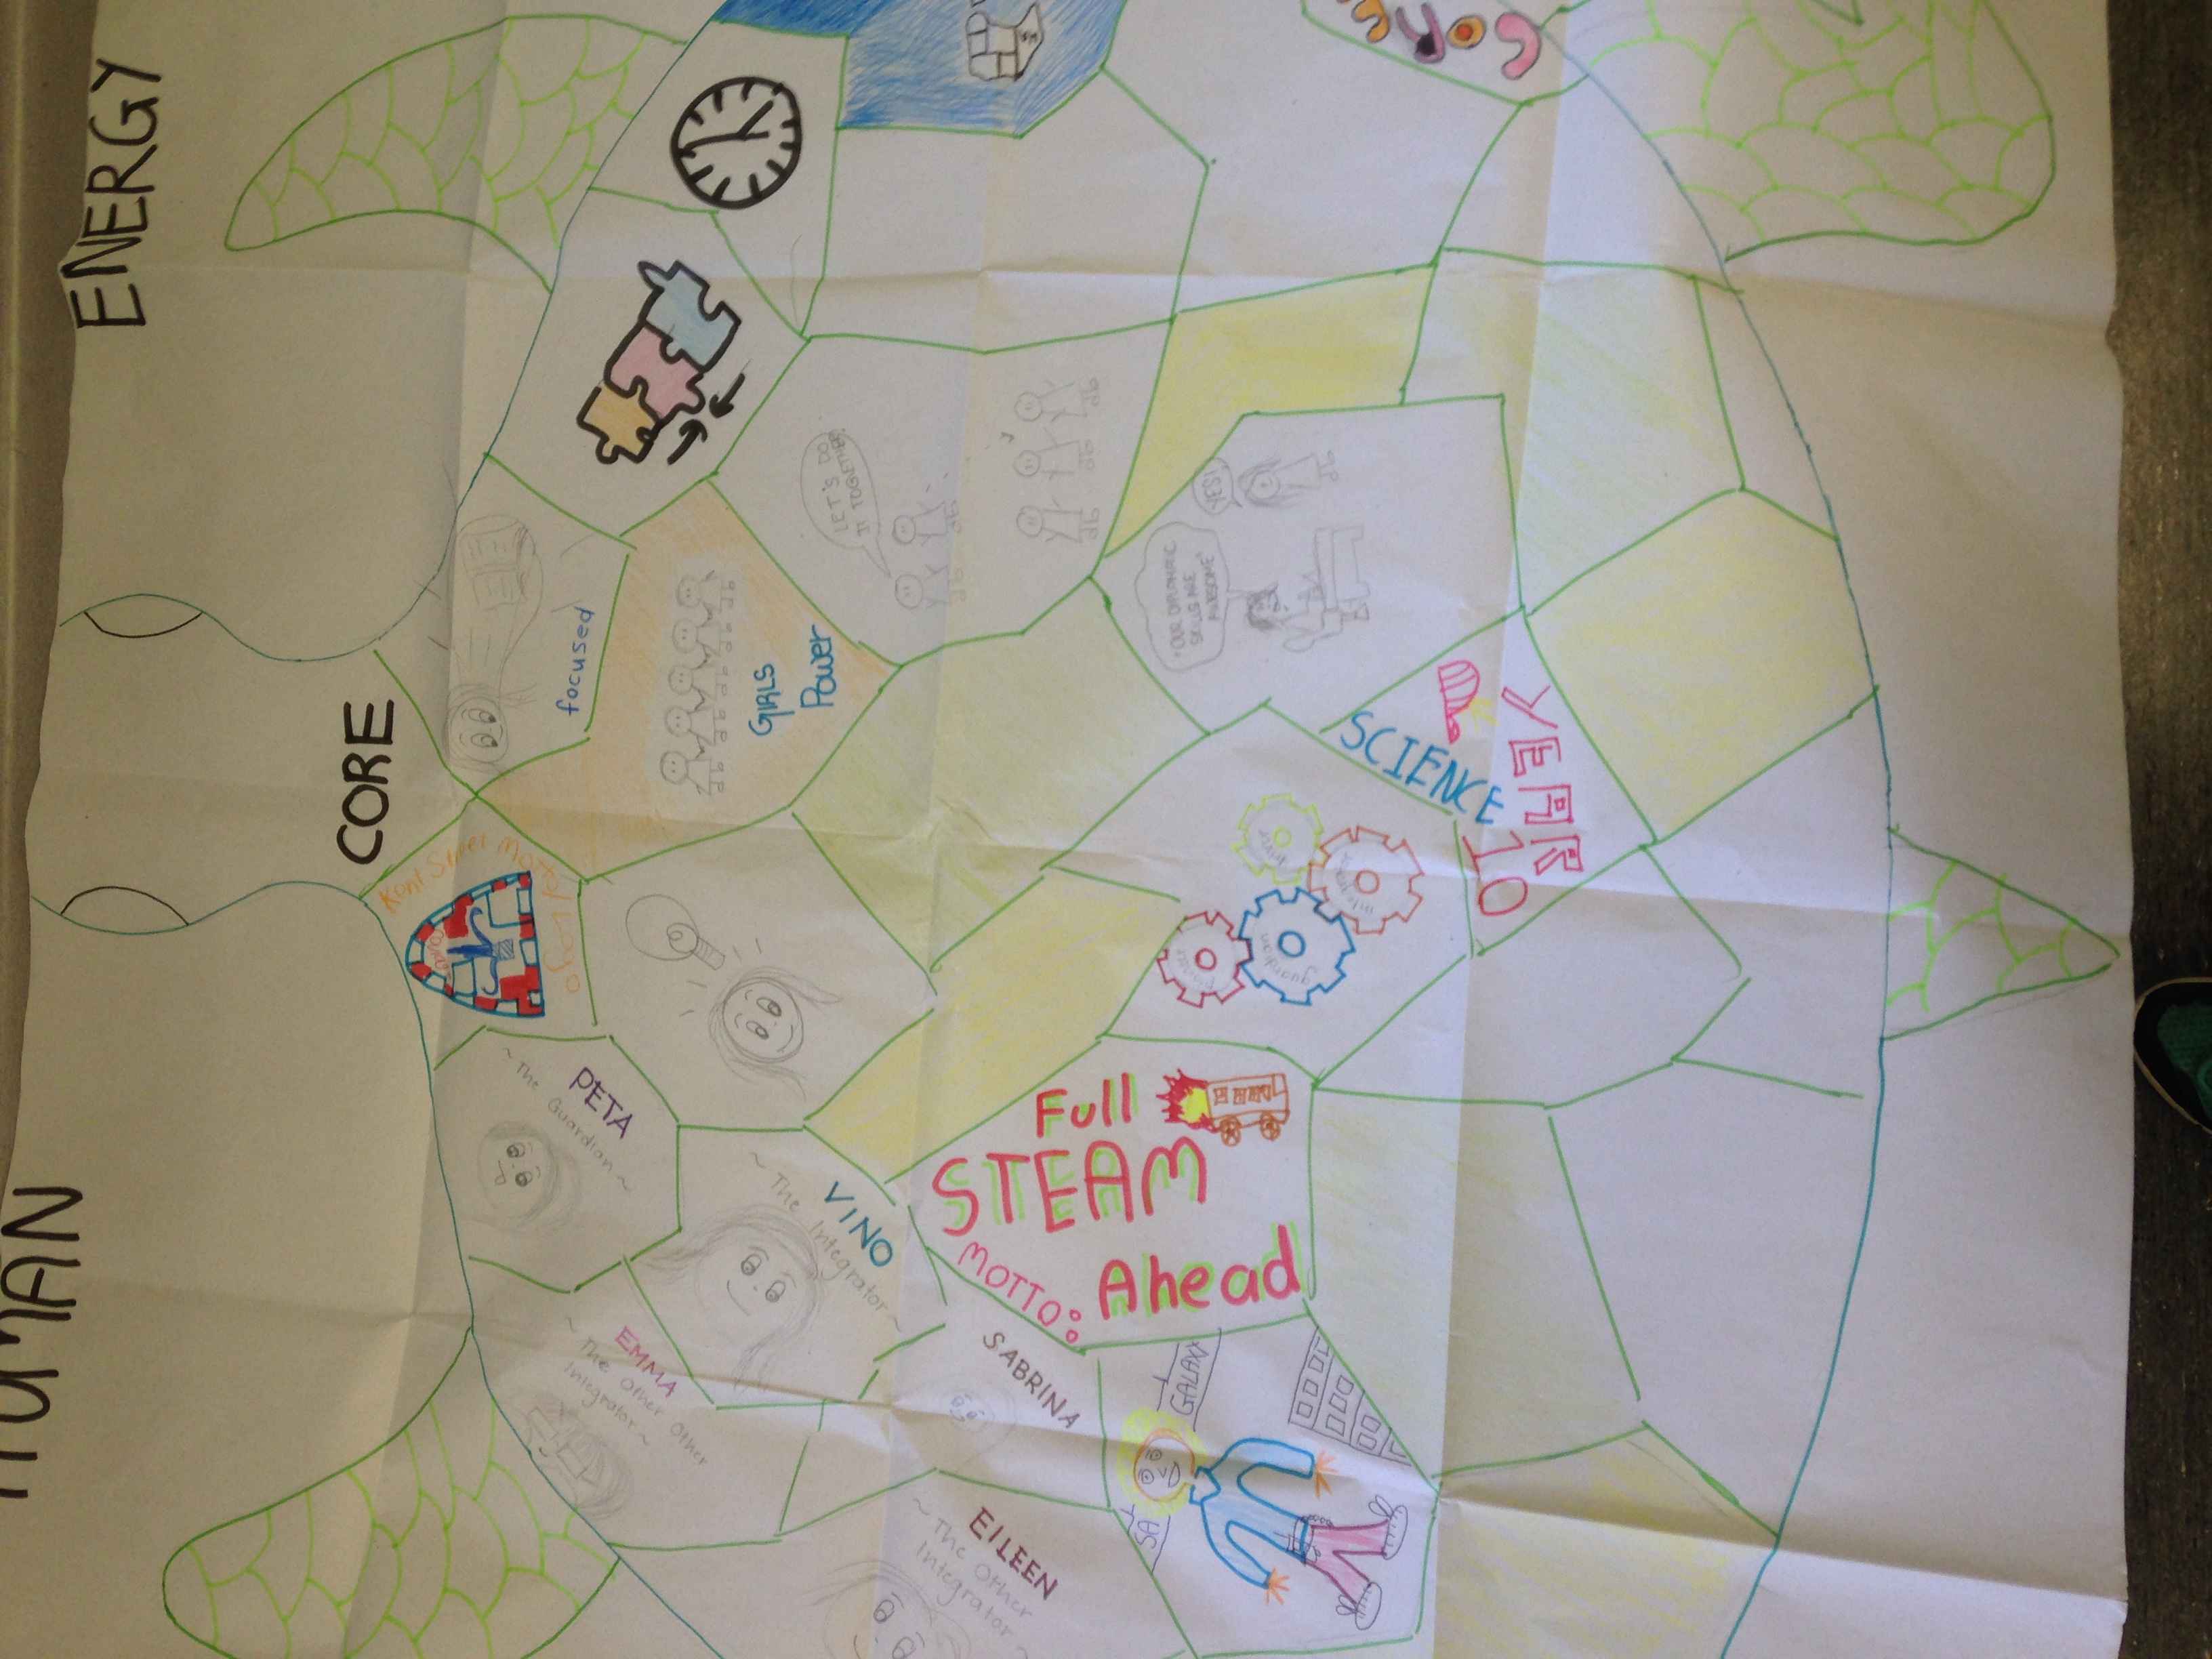 HUMAN
ENERGY
CORE
Kent Street Motto/Logo
focused
PETA
~ The Guardian ~
EMMA
~ The Other Other
Integrator ~
GIRLS
Power
VINO
~ The Integrator ~
LET'S DO
IT TOGETHER!
EILEEN
~ The Other
Integrator ~
SABRINA
MOTTO:
Full
STEAM
Ahead
SA
GALAXY
pioneer
guardian
driver
integrator
"OUR DIPLOMATIC
SKILLS ARE
AWESOME"
YES!
SCIENCE
YEAR
10